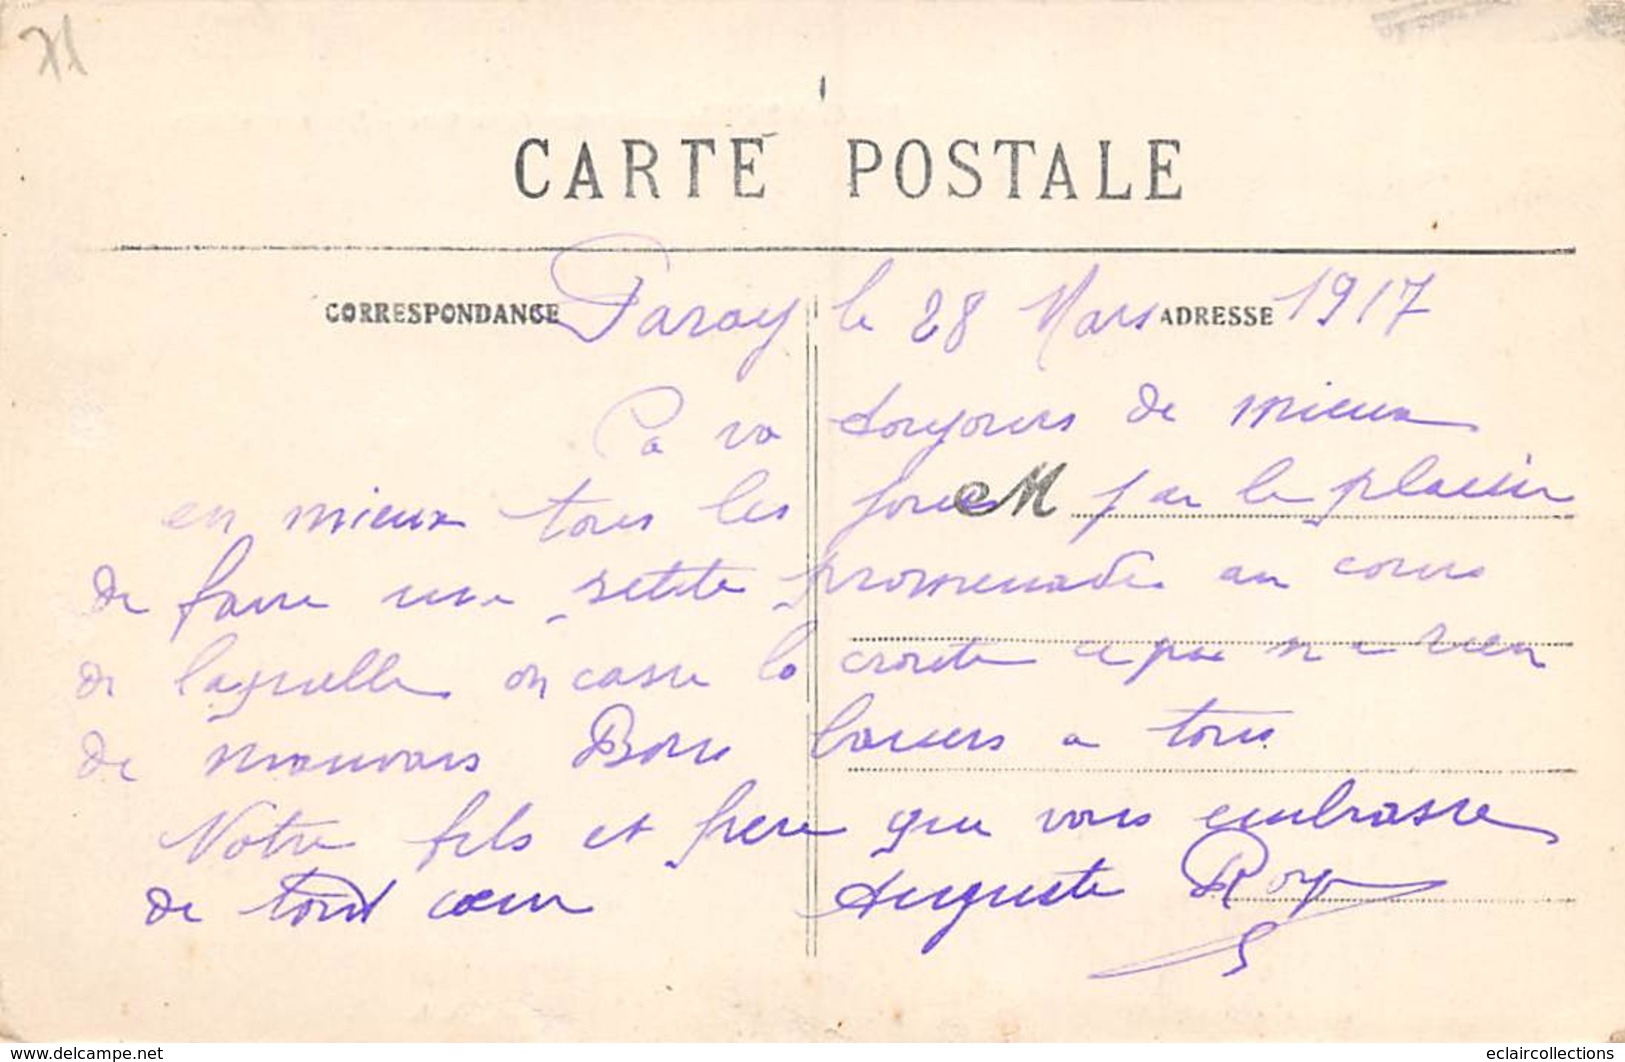 71
CARTE POSTALE
CORRESPONDANCE ADRESSE
Paray le 28 Mars 1917
Ça va toujours de mieux
en mieux tous les jours M j'ai le plaisir
de faire une petite promenade au cours
de laquelle on casse la croute ce qui n'a rien
de mauvais Bons baisers a tous
Notre fils et frere que vous embrasse
de tout cœur Auguste Roy
www.delcampe.net
eclaircollections